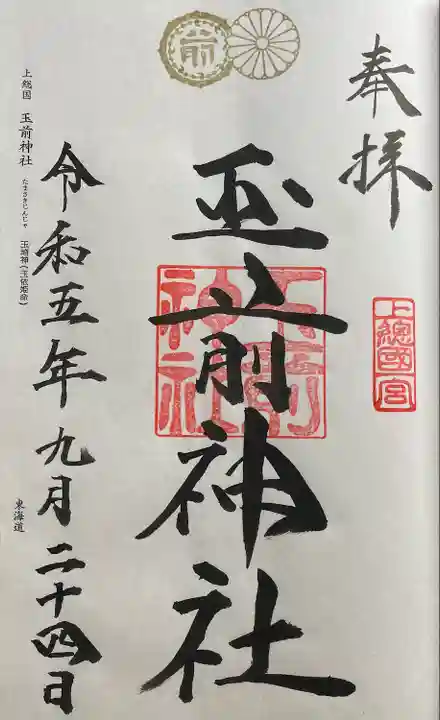 奉拝
上總國一宮
前
玉前神社
玉前神社
令和五年九月二十四日
上総国 玉前神社 たまさきじんじゃ 玉埼神(玉依姫命)
東海道